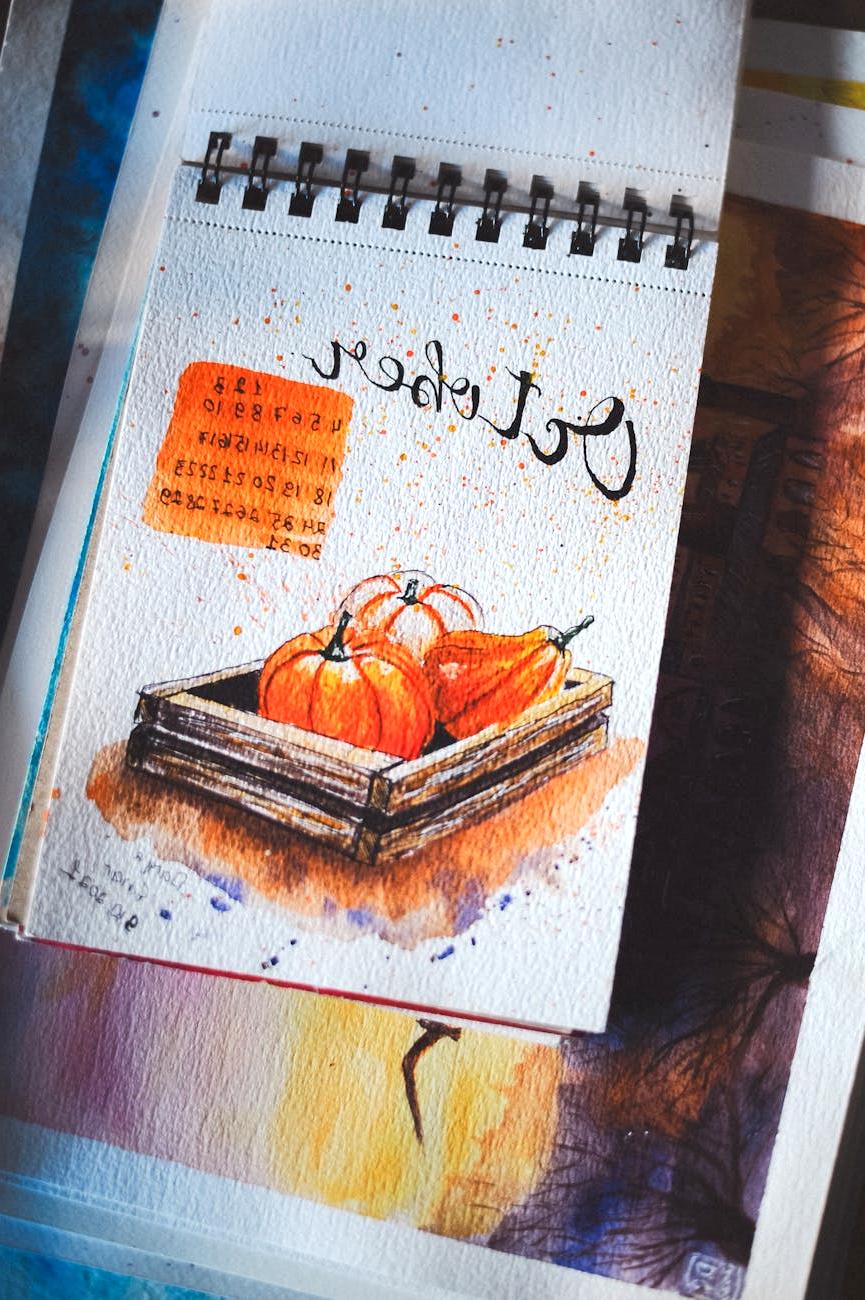 October
1 2 3
4 5 6 7 8 9 10
11 12 13 14 15 16 17
18 19 20 21 22 23
24 25 26 27 28 29
30 31
9 10 2021